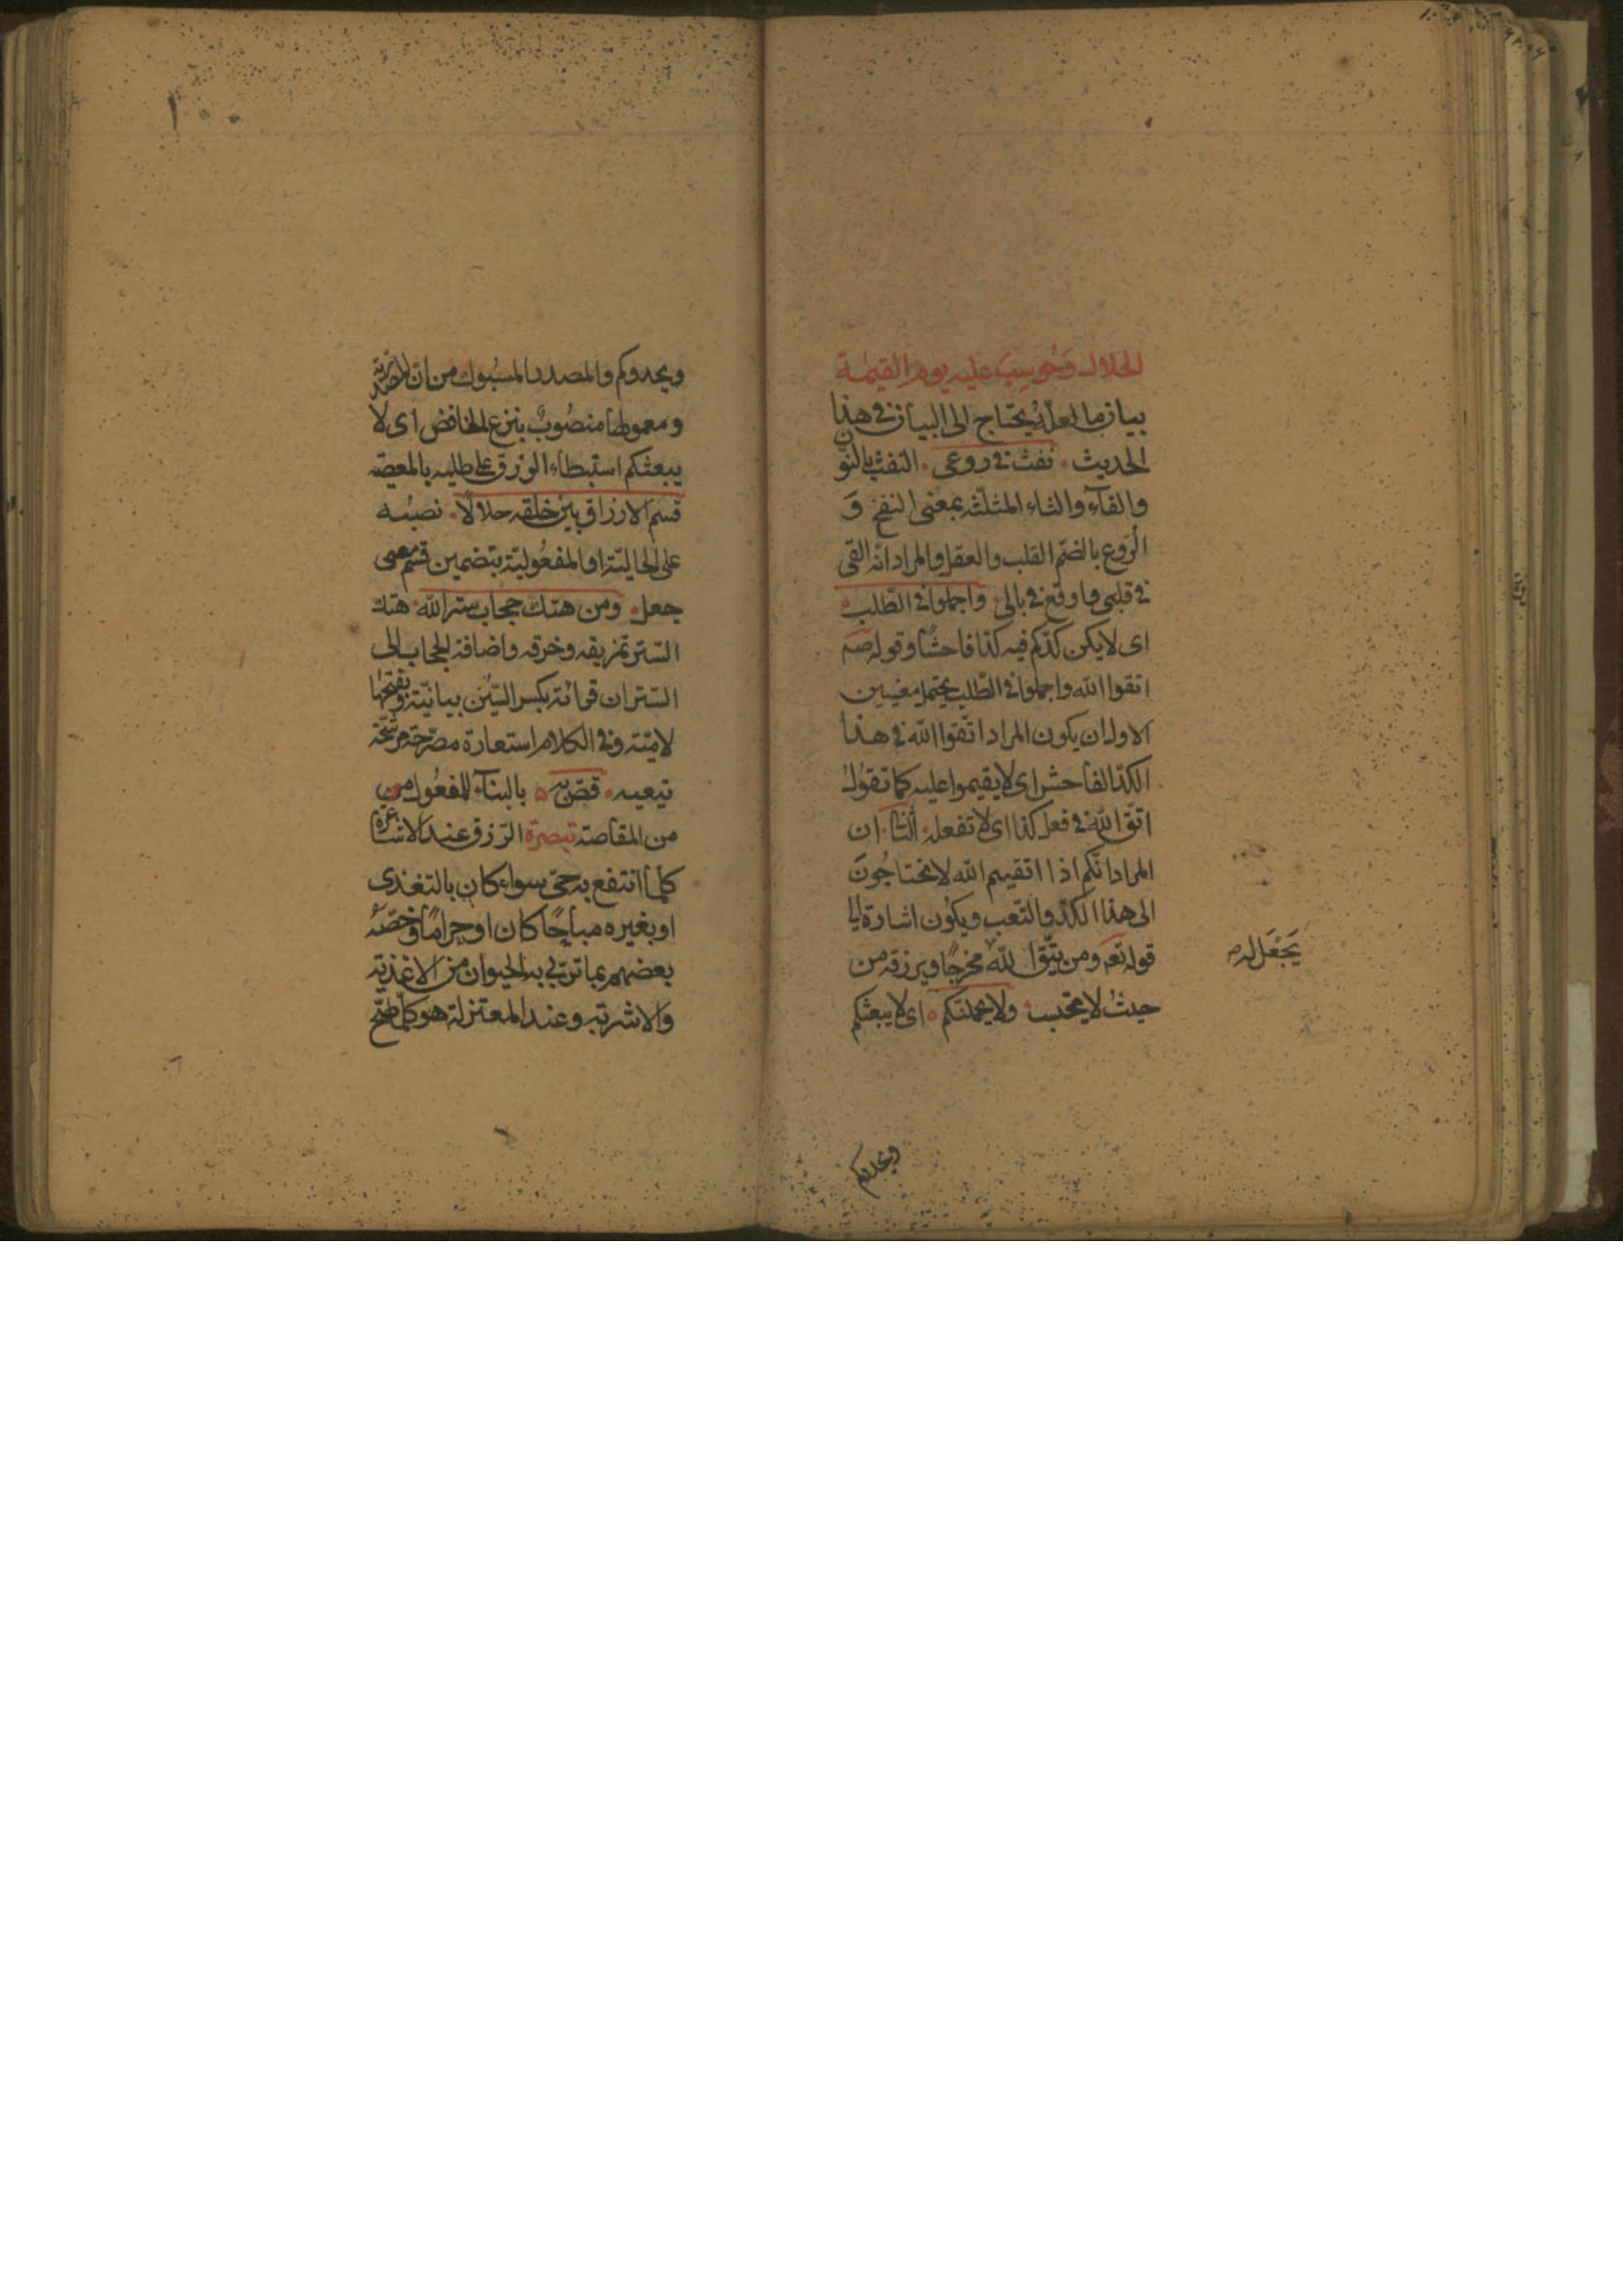 الحلال وَحُوسِبَ عليه يوم القيٰمة
بيان ما لعلّه يحتاج الى البيان فى هذا
الحديث نفث فى روعى النفث بالنون
والفآء والثاء المثلّثه بمعنى النفخ وَ
الرُوع بالضم القلب والعقل والمراد انّه القى
فى قلبى واوقع فى بالى واجملوا فى الطلب
اى لا يكن كدّكم فيه كدّا فاحشًا وقوله صم
اتقوا الله واجملوا فى الطّلب يحتمل معنيين
الاول ان يكون المراد اتّقوا الله فى هذا
الكدّ الفاحش اى لا يقيموا عليه كما تقول
اتّق الله فى فعل كذا اى لا تفعله الثّانى ان
المراد انّكم اذا اتقيتم الله لا تحتاجُونَ
الى هذا الكدّ والتّعب ويكون اشارة الى
قوله تعَم ومن يتّق الله مخرجًا ويرزقه من
يَجْعَل له صح
حيثُ لا يحتسب ولا يحملنّكم اى لا يبعثكم
ويحدوكم
١٠٠
ويحدوكم والمصدر المسبوك من ان المصدريّة
ومعمولها منصُوبٌ بنزع الخافض اى لا
يبعثكم استبطاء الرزق على طلبه بالمعصية
قسم الارزاق بين خلقه حلالًا نصبُه
على الحاليّة او المفعُوليّة بتضمين قسم معنى
جعل ومن هتك حجاب ستر الله هتك
السّتر تمزيقه وخرقه واضافة الحجاب الى
السّتر ان قرأته بكسر السّين بيانيّة وبفتحها
لاميّته وفى الكلام استعارة مصرّحة مرشّحة
تبعيه قصّ به بالبنآء للمفعُول من
من المقاصّة تبصرة الرّزق عند الاشاعرة
كلّما انتفع به حىّ سواء كان بالتغذى
او بغيره مباحًا كان او حرامًا وخصّه
بعضهم بما تربّى به الحيوان من الاغذية
والاشربة وعند المعتزلة هو كلّما صحّ